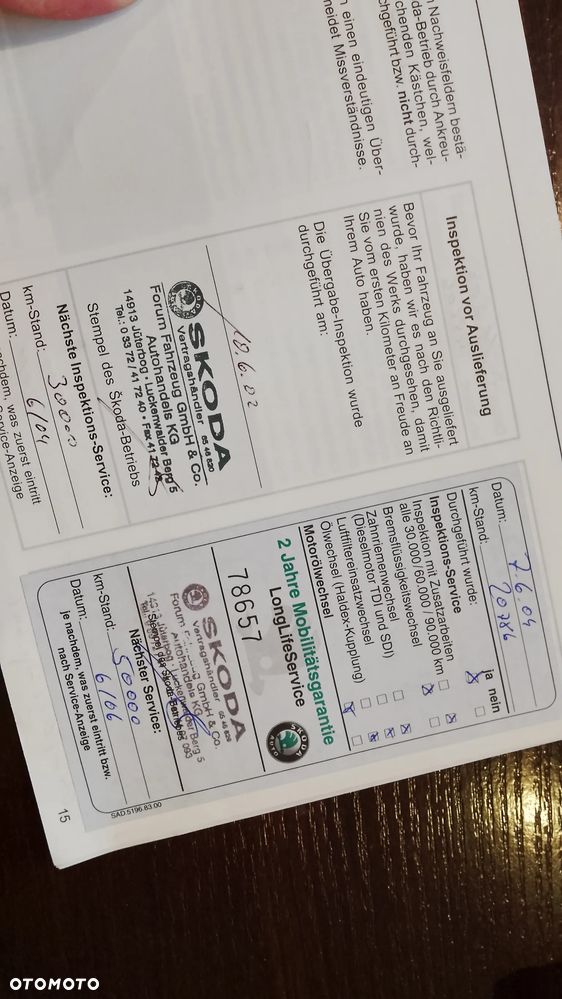 n Nachweisfeldern bestä-
da-Betrieb durch Ankreu-
chenden Kästchen, wel-
chgeführt bzw. nicht durch-
n einen eindeutigen Über-
meidet Missverständnisse.
Inspektion vor Auslieferung
Bevor Ihr Fahrzeug an Sie ausgeliefert
wurde, haben wir es nach den Richtli-
nien des Werks durchgesehen, damit
Sie vom ersten Kilometer an Freude an
Ihrem Auto haben.
Die Übergabe-Inspektion wurde
durchgeführt am:
18.6.02
SKODA
Vertragshändler
Forum Fahrzeug GmbH & Co.
Autohandels KG
14913 Jüterbog · Luckenwalder Berg 5
Tel.: 0 33 72 / 41 72 40 · Fax 41 72
Stempel des Škoda-Betriebs
Nächste Inspektions-Service:
km-Stand: 30000
Datum: 6/04
nachdem, was zuerst eintritt
Service-Anzeige
Datum: 7.6.04
km-Stand:
Durchgeführt wurde: ja nein
Inspektions-Service
Inspektion mit Zusatzarbeiten
alle 30.000/60.000/90.000 km
Bremsflüssigkeitswechsel
Zahnriemenwechsel
(Dieselmotor TDI und SDI)
Luftfiltereinsatzwechsel
Ölwechsel (Haldex-Kupplung)
Motorölwechsel
2 Jahre Mobilitätsgarantie
LongLifeService
SKODA AUTO
78657
SKODA
Vertragshändler
Forum GmbH & Co.
Autohandels KG
14913 Jüterbog Luckenwalder Berg 5
Stempel des Škoda-Betriebs
Nächster Service:
km-Stand: 50000
Datum: 6/06
je nachdem, was zuerst eintritt bzw.
nach Service-Anzeige
SAD.5196.83.00
15
OTOMOTO